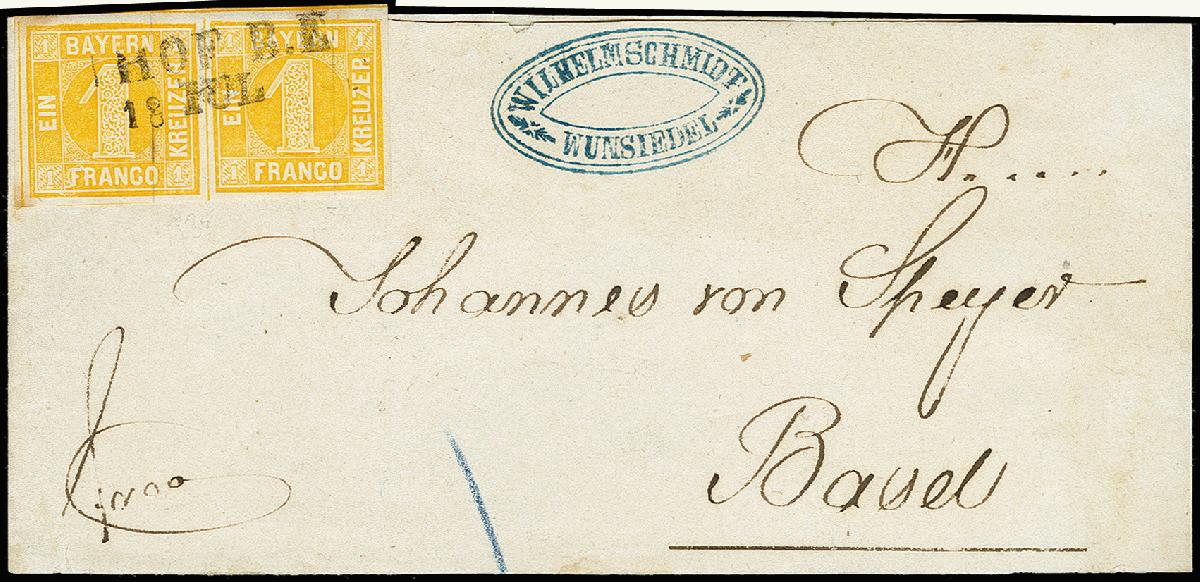 BAYERN
EIN
KREUZER
FRANCO
1
1
1
1
1
BAYERN
EIN
KREUZER
FRANCO
1
1
1
1
1
HOF B.E
18 JUL
WILHELM SCHMIDT
WUNSIEDEL
H.....
Johannes von Speyer
Basel